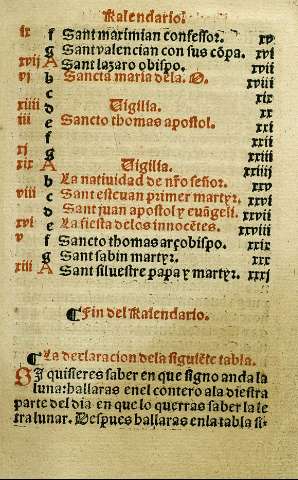 Kalendario.
ix f Sant maximian cõfessor. xv
g Sant valencian con sus cõpa. xvi
xvij A Sant lazaro obispo. xvij
vj b Sancta maria dela. O. xviii
c xix
xiiii d Vigilia. xx
iii e Sancto thomas apostol. xxi
f xxii
xj g xxiii
xix A Vigilia. xxiiii
b La natiuidad de nr̃o señor. xxv
viii c Sant esteuan primer martyr. xxvi
d Sant juan apostol y euãgeli. xxvii
xvi e La fiesta delos innocẽtes. xxviii
v f Sancto thomas arçobispo. xxix
g Sant sabin martyr. xxx
xiii A Sant siluestre papa y martyr. xxxj
¶ Fin del Kalendario.
¶ La declaracion dela siguiẽte tabla.
SI quisieres saber en que signo anda la
luna: hallaras enel contero ala diestra
parte del dia en que lo querras saber la le
tra lunar. Despues hallaras enla tabla si-